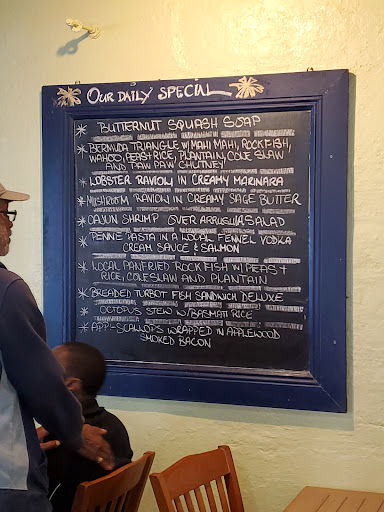 OUR DAILY SPECIAL
* BUTTERNUT SQUASH SOAP
* BERMUDA TRIANGLE W/ MAHI MAHI, ROCKFISH,
WAHOO, PEAS + RICE, PLANTAIN, COLE SLAW
AND PAW PAW CHUTNEY
* LOBSTER RAVIOLI IN CREAMY MARINARA
* MUSHROOM RAVIOLI IN CREAMY SAGE BUTTER
* CAJUN SHRIMP OVER ARRUGULA SALAD
* PENNE PASTA IN A LOCAL FENNEL VODKA
CREAM SAUCE & SALMON
* LOCAL PANFRIED ROCKFISH W/ PEAS +
RICE, COLESLAW AND PLANTAIN
* BREADED TURBOT FISH SANDWICH DELUXE
* OCTOPUS STEW W/ BASMATI RICE
* APP - SCALLOPS WRAPPED IN APPLEWOOD
SMOKED BACON